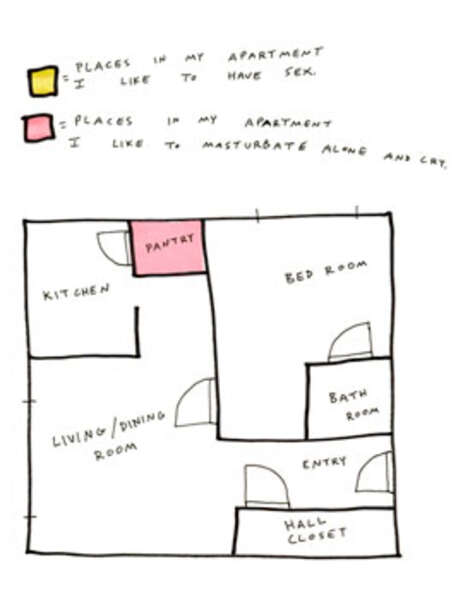 = PLACES IN MY APARTMENT
I LIKE TO HAVE SEX.
= PLACES IN MY APARTMENT
I LIKE TO MASTURBATE ALONE AND CRY.
PANTRY
BED ROOM
KITCHEN
BATH
ROOM
LIVING/DINING
ROOM
ENTRY
HALL
CLOSET